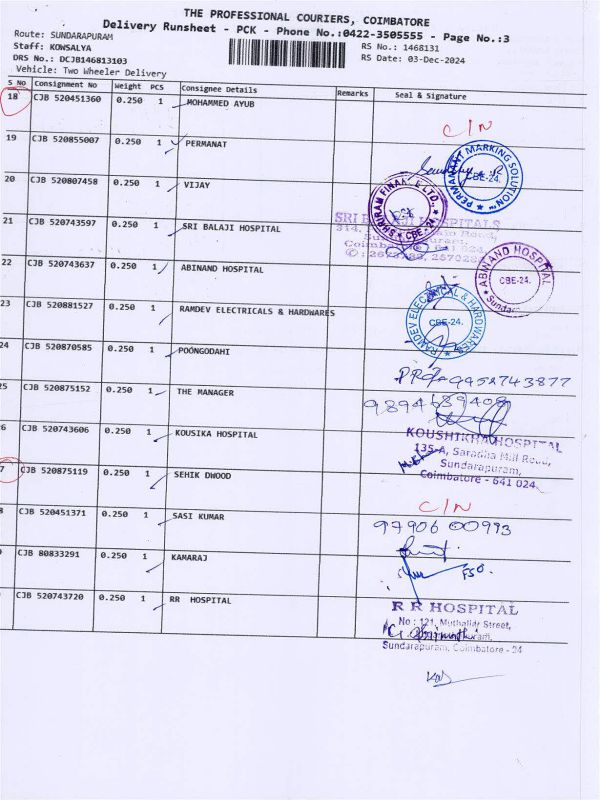 THE PROFESSIONAL COURIERS, COIMBATORE
Delivery Runsheet - PCK - Phone No.:0422-3505555 - Page No.:3
Route: SUNDARAPURAM RS No.: 1468131
Staff: KOWSALYA RS Date: 03-Dec-2024
DRS No.: DCJB146813103
Vehicle: Two Wheeler Delivery
S No Consignment No Weight PCS Consignee Details Remarks Seal & Signature
18 CJB 520451360 0.250 1 MOHAMMED AYUB
C/N
19 CJB 520855007 0.250 1 PERMANAT
PERMANANT MARKING SOLUTION CBE-24.
20 CJB 520807458 0.250 1 VIJAY
SHRIRAM FINANCE LTD., CBE-24
21 CJB 520743597 0.250 1 SRI BALAJI HOSPITAL
SRI BALAJI HOSPITALS
314, Road,
Sundarapuram,
Coimbatore - 641 024.
22 CJB 520743637 0.250 1 ABINAND HOSPITAL
ABINAND HOSPITAL CBE-24.
23 CJB 520881527 0.250 1 RAMDEV ELECTRICALS & HARDWARES
RAMDEV ELECTRICAL & HARDWARES CBE-24.
24 CJB 520870585 0.250 1 POONGODAHI
9952743877
25 CJB 520875152 0.250 1 THE MANAGER
9894689408
6 CJB 520743606 0.250 1 KOUSIKA HOSPITAL
KOUSHIKHA HOSPITAL
135-A, Saradha Mill Road,
Sundarapuram,
Coimbatore - 641 024.
7 CJB 520875119 0.250 1 SEHIK DWOOD
C/N
8 CJB 520451371 0.250 1 SASI KUMAR
97906 00993
CJB 80833291 0.250 1 KAMARAJ
CJB 520743720 0.250 1 RR HOSPITAL
R R HOSPITAL
No : 121, Muthaliar Street,
Sundarapuram, Coimbatore - 24